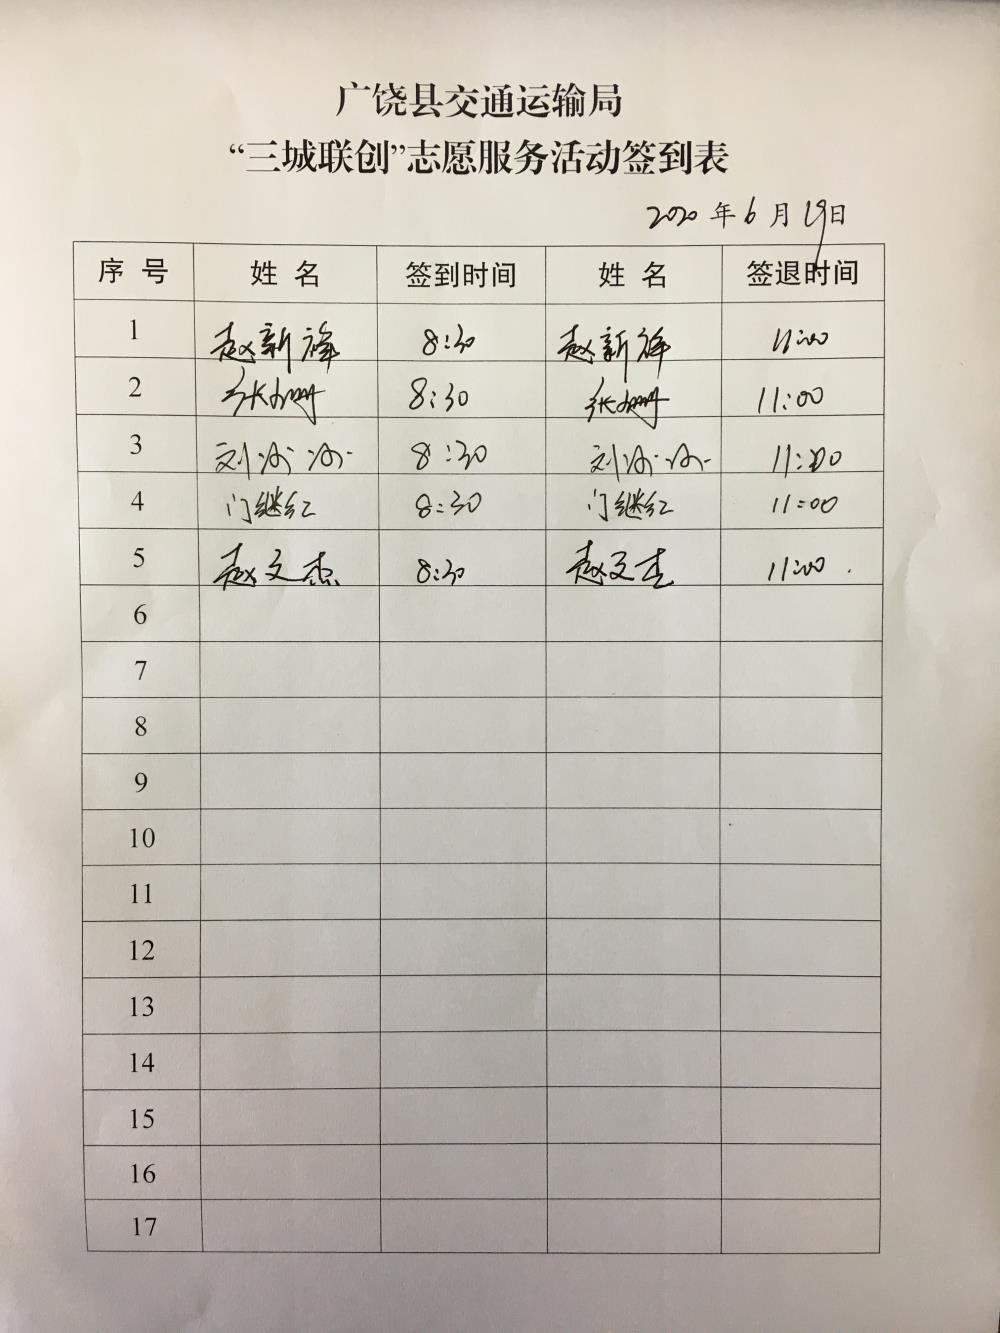 广饶县交通运输局
“三城联创”志愿服务活动签到表
2020年6月19日
序 号 姓 名 签到时间 姓 名 签退时间
1 赵新 8:30 赵新 11:00
2 张 8:30 张 11:00
3 刘 8:30 刘 11:00
4 门继红 8:30 门继红 11:00
5 赵文杰 8:30 赵文杰 11:00
6
7
8
9
10
11
12
13
14
15
16
17